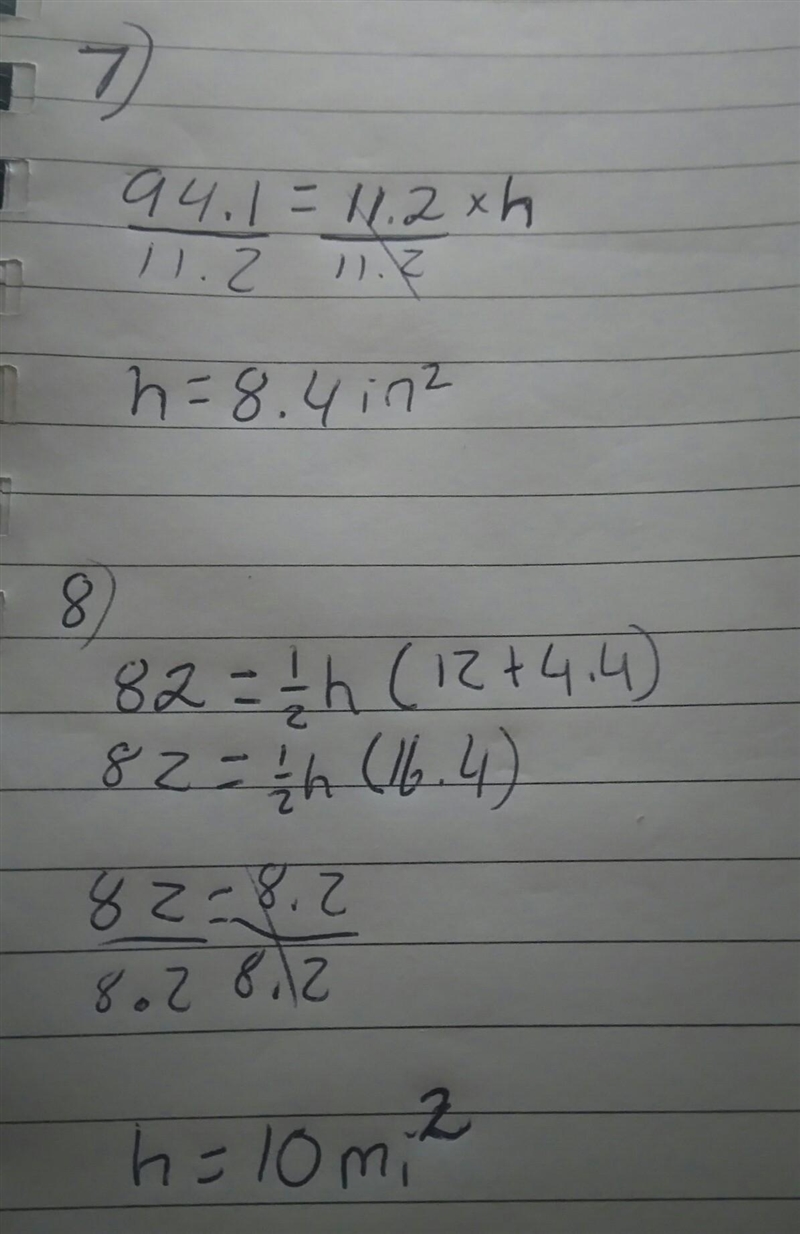 7)
94.1 = 11.2 × h
11.2 11.2
h = 8.4 in²
8)
82 = 1/2 h (12 + 4.4)
82 = 1/2 h (16.4)
82 = 8.2
8.2 8.2
h = 10 mi²